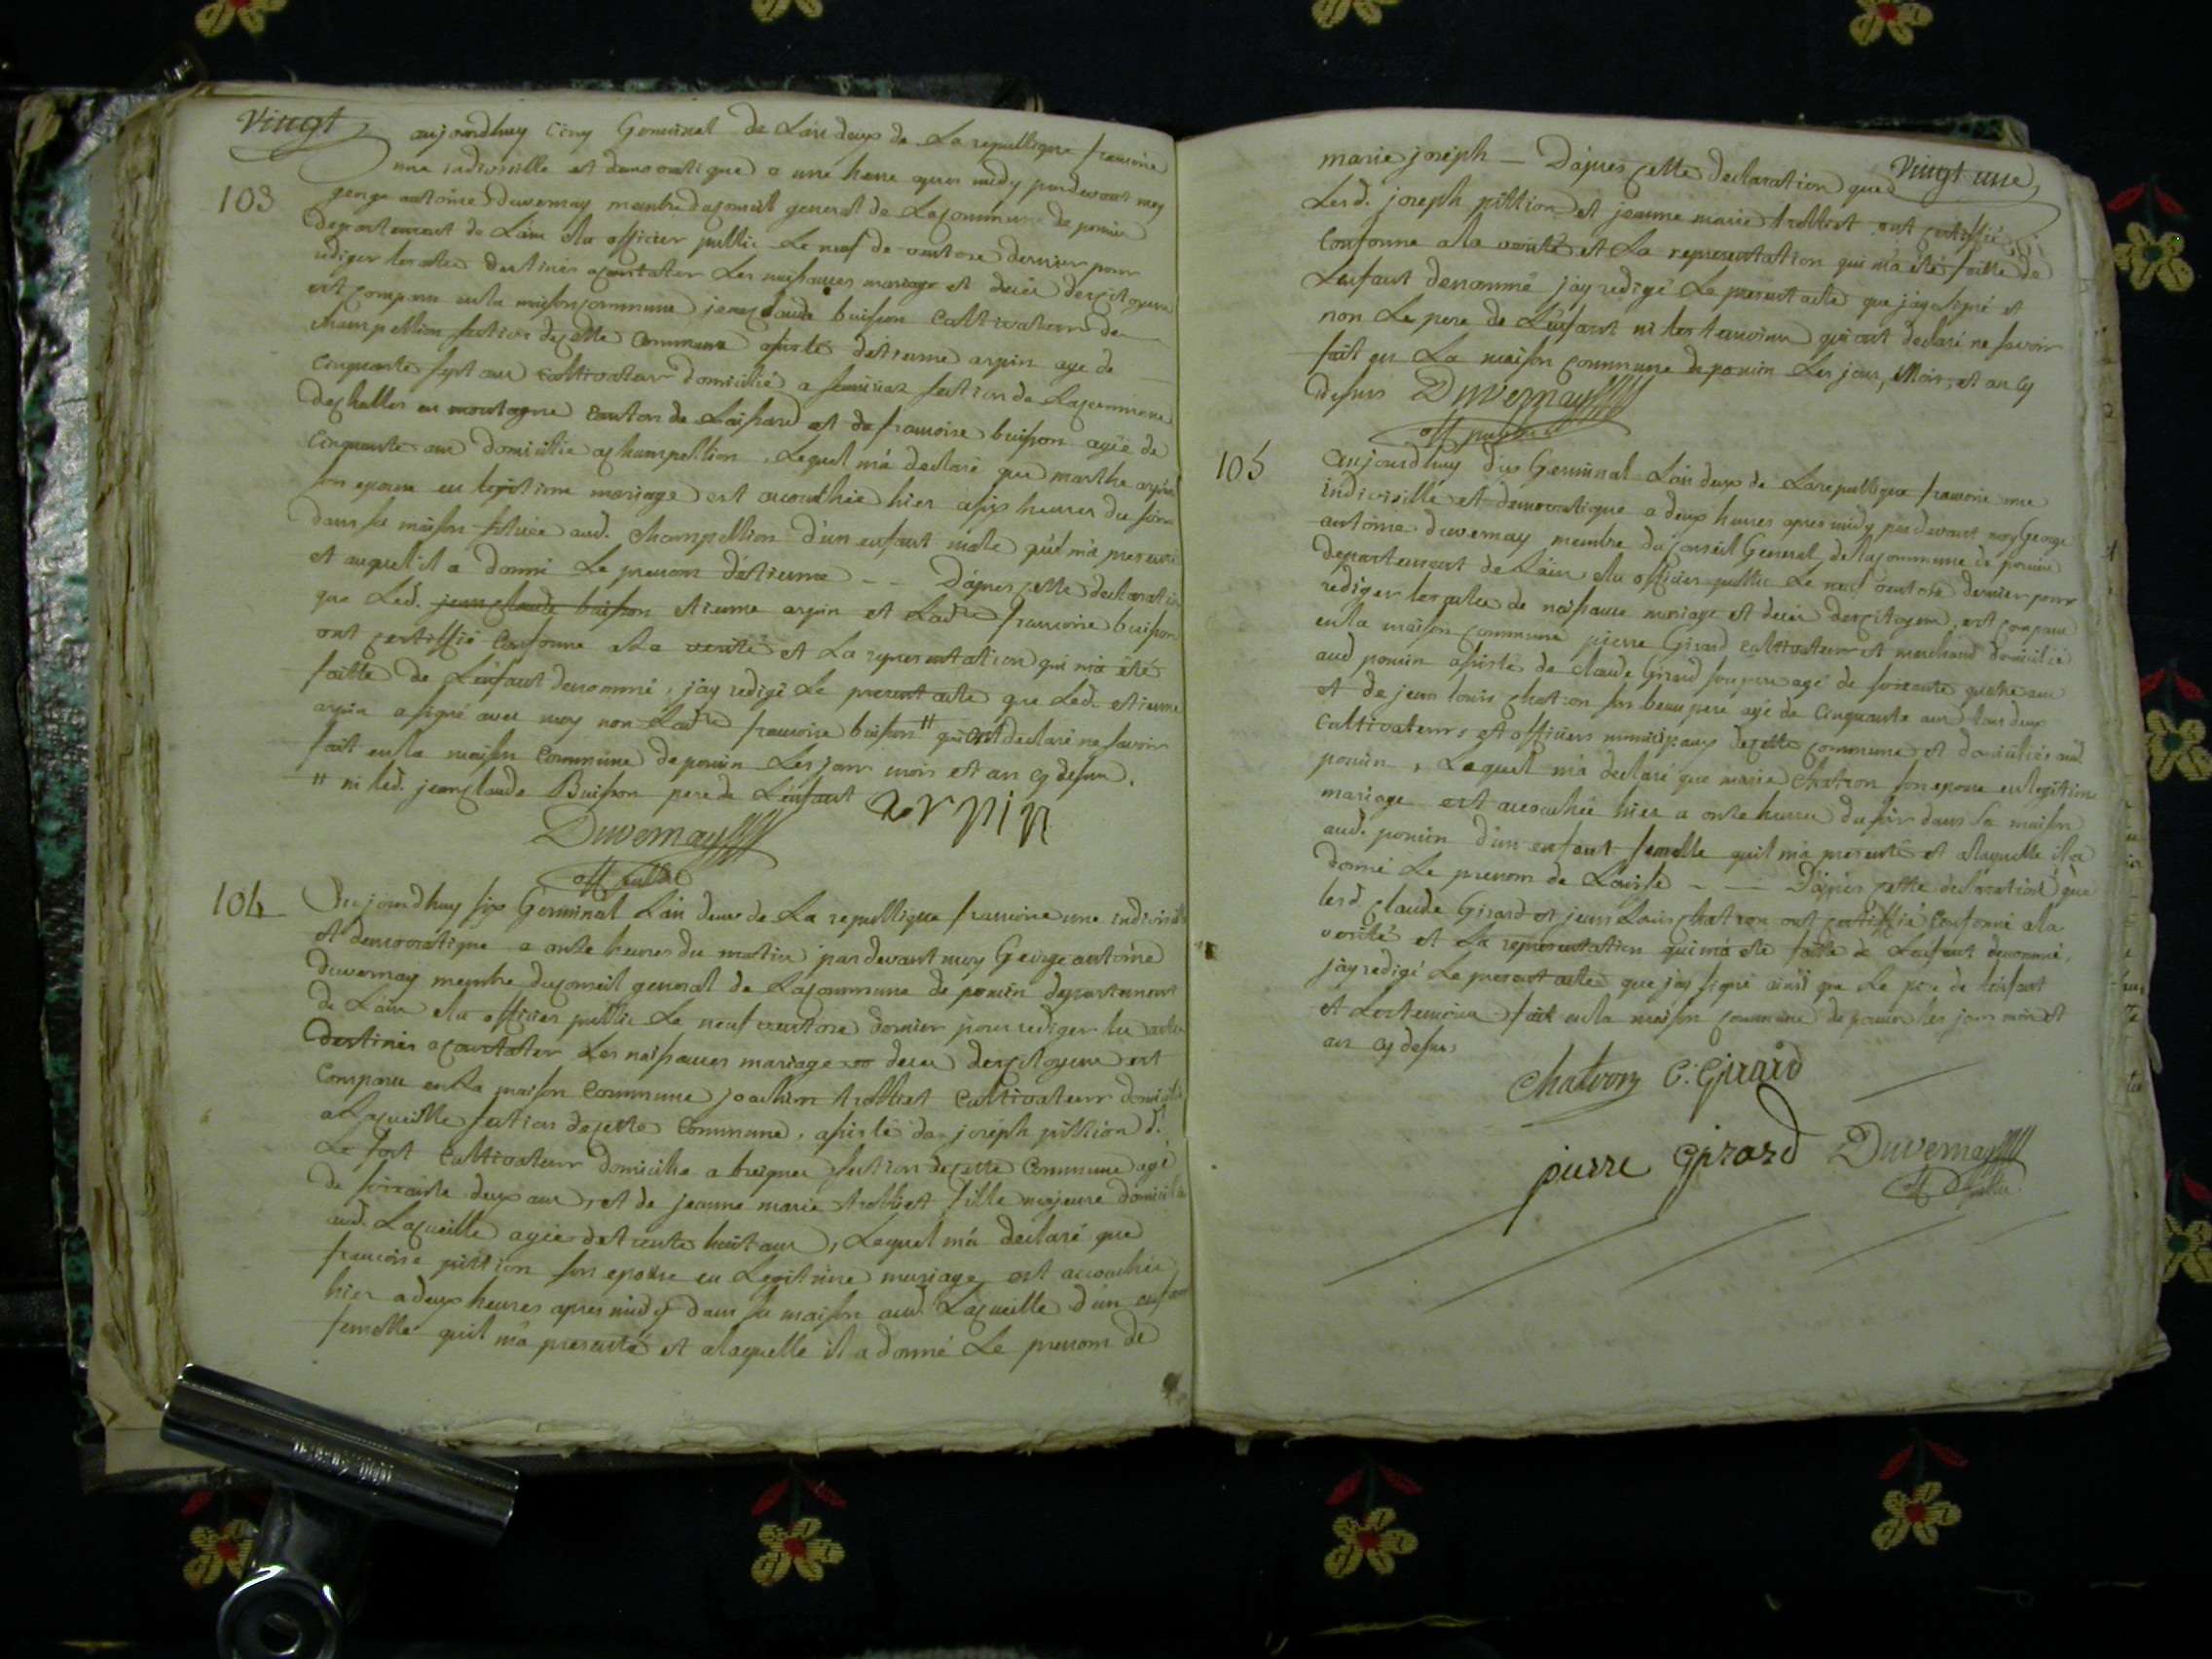 Vingt
aujourdhuy cinq Germinal de Lan deux de La republique francoise
une indivisible et democratique a une heure apres midy pardevant moy
103
george antoine duvernay membre du conseil general de La commune de poncin
departement de Lain elu officier public Le neuf de ventose dernier pour
rediger les actes destinés a constater Les naissances mariage et décès des citoyens
est comparu en la maison commune jean claude buisson cultivateur de
champeillon section de cette commune assisté détienne arpin agé de
cinquante sept ans cultivateur domicilié a section de La commune
des challes en montagne canton de et de francoise buisson agée de
cinquante ans domiciliée a champeillon, Lequel m'a declaré que marthe arpin
son epouse en legitime mariage est accouchée hier a six heures du soir
dans sa maison située aud. champeillon d'un enfant mâle qu'il m'a presenté
et auquel il a donné Le prenom détienne - - D'apres cette declaration
que Led. jean claude buisson etienne arpin et Ladte francoise buisson
ont certiffié conforme a La verité et La representation qui m'a été
faitte de L'enfant denommé, j'ay redigé Le present acte que Led. etienne
arpin a signé avec moy non Ladte francoise buisson " qui ont declaré ne savoir
fait en la maison commune de poncin Les jour mois et an cy dessus.
" ni led. jean claude Buisson pere de L'enfant arpin
Duvernay
off public
104 Aujourdhuy six Germinal Lan deux de La republique francoise une indivisible
et democratique a onze heures du matin pardevant moy George antoine
duvernay membre du conseil general de La commune de poncin departement
de Lain elu officier public Le neuf ventose dernier pour rediger les actes
destinés a constater Les naissances mariage et décès des citoyens est
comparu en La maison commune joachim trolliet cultivateur domicilié
a La cueille section de cette commune, assisté de joseph pittion d.
Le fort cultivateur domicilié a breignes section de cette commune agé
de soixante deux ans, et de jeanne marie trolliet fille majeure domiciliée
aud. La cueille agée de trente huit ans, Lequel m'a declaré que
francoise pittion son epouse en Legitime mariage est accouchée
hier a deux heures apres midy dans sa maison aud. La cueille d'un enfant
femelle qu'il m'a presenté et a laquelle il a donné Le prenom de
Vingt une
marie joseph - D'apres cette declaration que
Lesd. joseph pittion et jeanne marie trolliet ont certiffié
conforme a la verité et La representation qui m'a été faitte de
L'enfant denommé j'ay redigé Le present acte que j'ay signé et
non Le pere de L'enfant ni les temoins qui ont declaré ne savoir
fait en La maison commune de poncin Les jour, mois, et an cy
dessus Duvernay
off public
105 Aujourdhuy dix Germinal L'an deux de La republique francoise une
indivisible et democratique a deux heures apres midy pardevant moy George
antoine duvernay membre du conseil General de la commune de poncin
departement de Lain elu officier public Le neuf ventose dernier pour
rediger les actes de naissance mariage et décès des citoyens, est comparu
en la maison commune pierre Girard cultivateur et marchand domicilié
aud poncin assisté de claude Girard son pere agé de soixante quatre ans
et de jean louis chatron son beau pere agé de cinquante ans tous deux
cultivateurs et officiers municipaux de cette commune et domiciliés aud.
poncin, Lequel m'a declaré que marie chatron son epouse en legitime
mariage est accouchée hier a onze heures du soir dans sa maison
aud. poncin d'un enfant femelle quil m'a presenté et a laquelle il a
donné Le prenom de Louise - - D'apres cette declaration que
lesd claude Girard et jean Louis chatron ont certiffié conforme a la
verité et La representation qui m'a été faitte de L'enfant denommé,
j'ay redigé Le present acte que j'ay signé ainsi que Le pere de l'enfant
et Les temoins fait en la maison commune de poncin les jour mois et
an cy dessus
Chatron C. Girard
pierre Girard Duvernay
off public